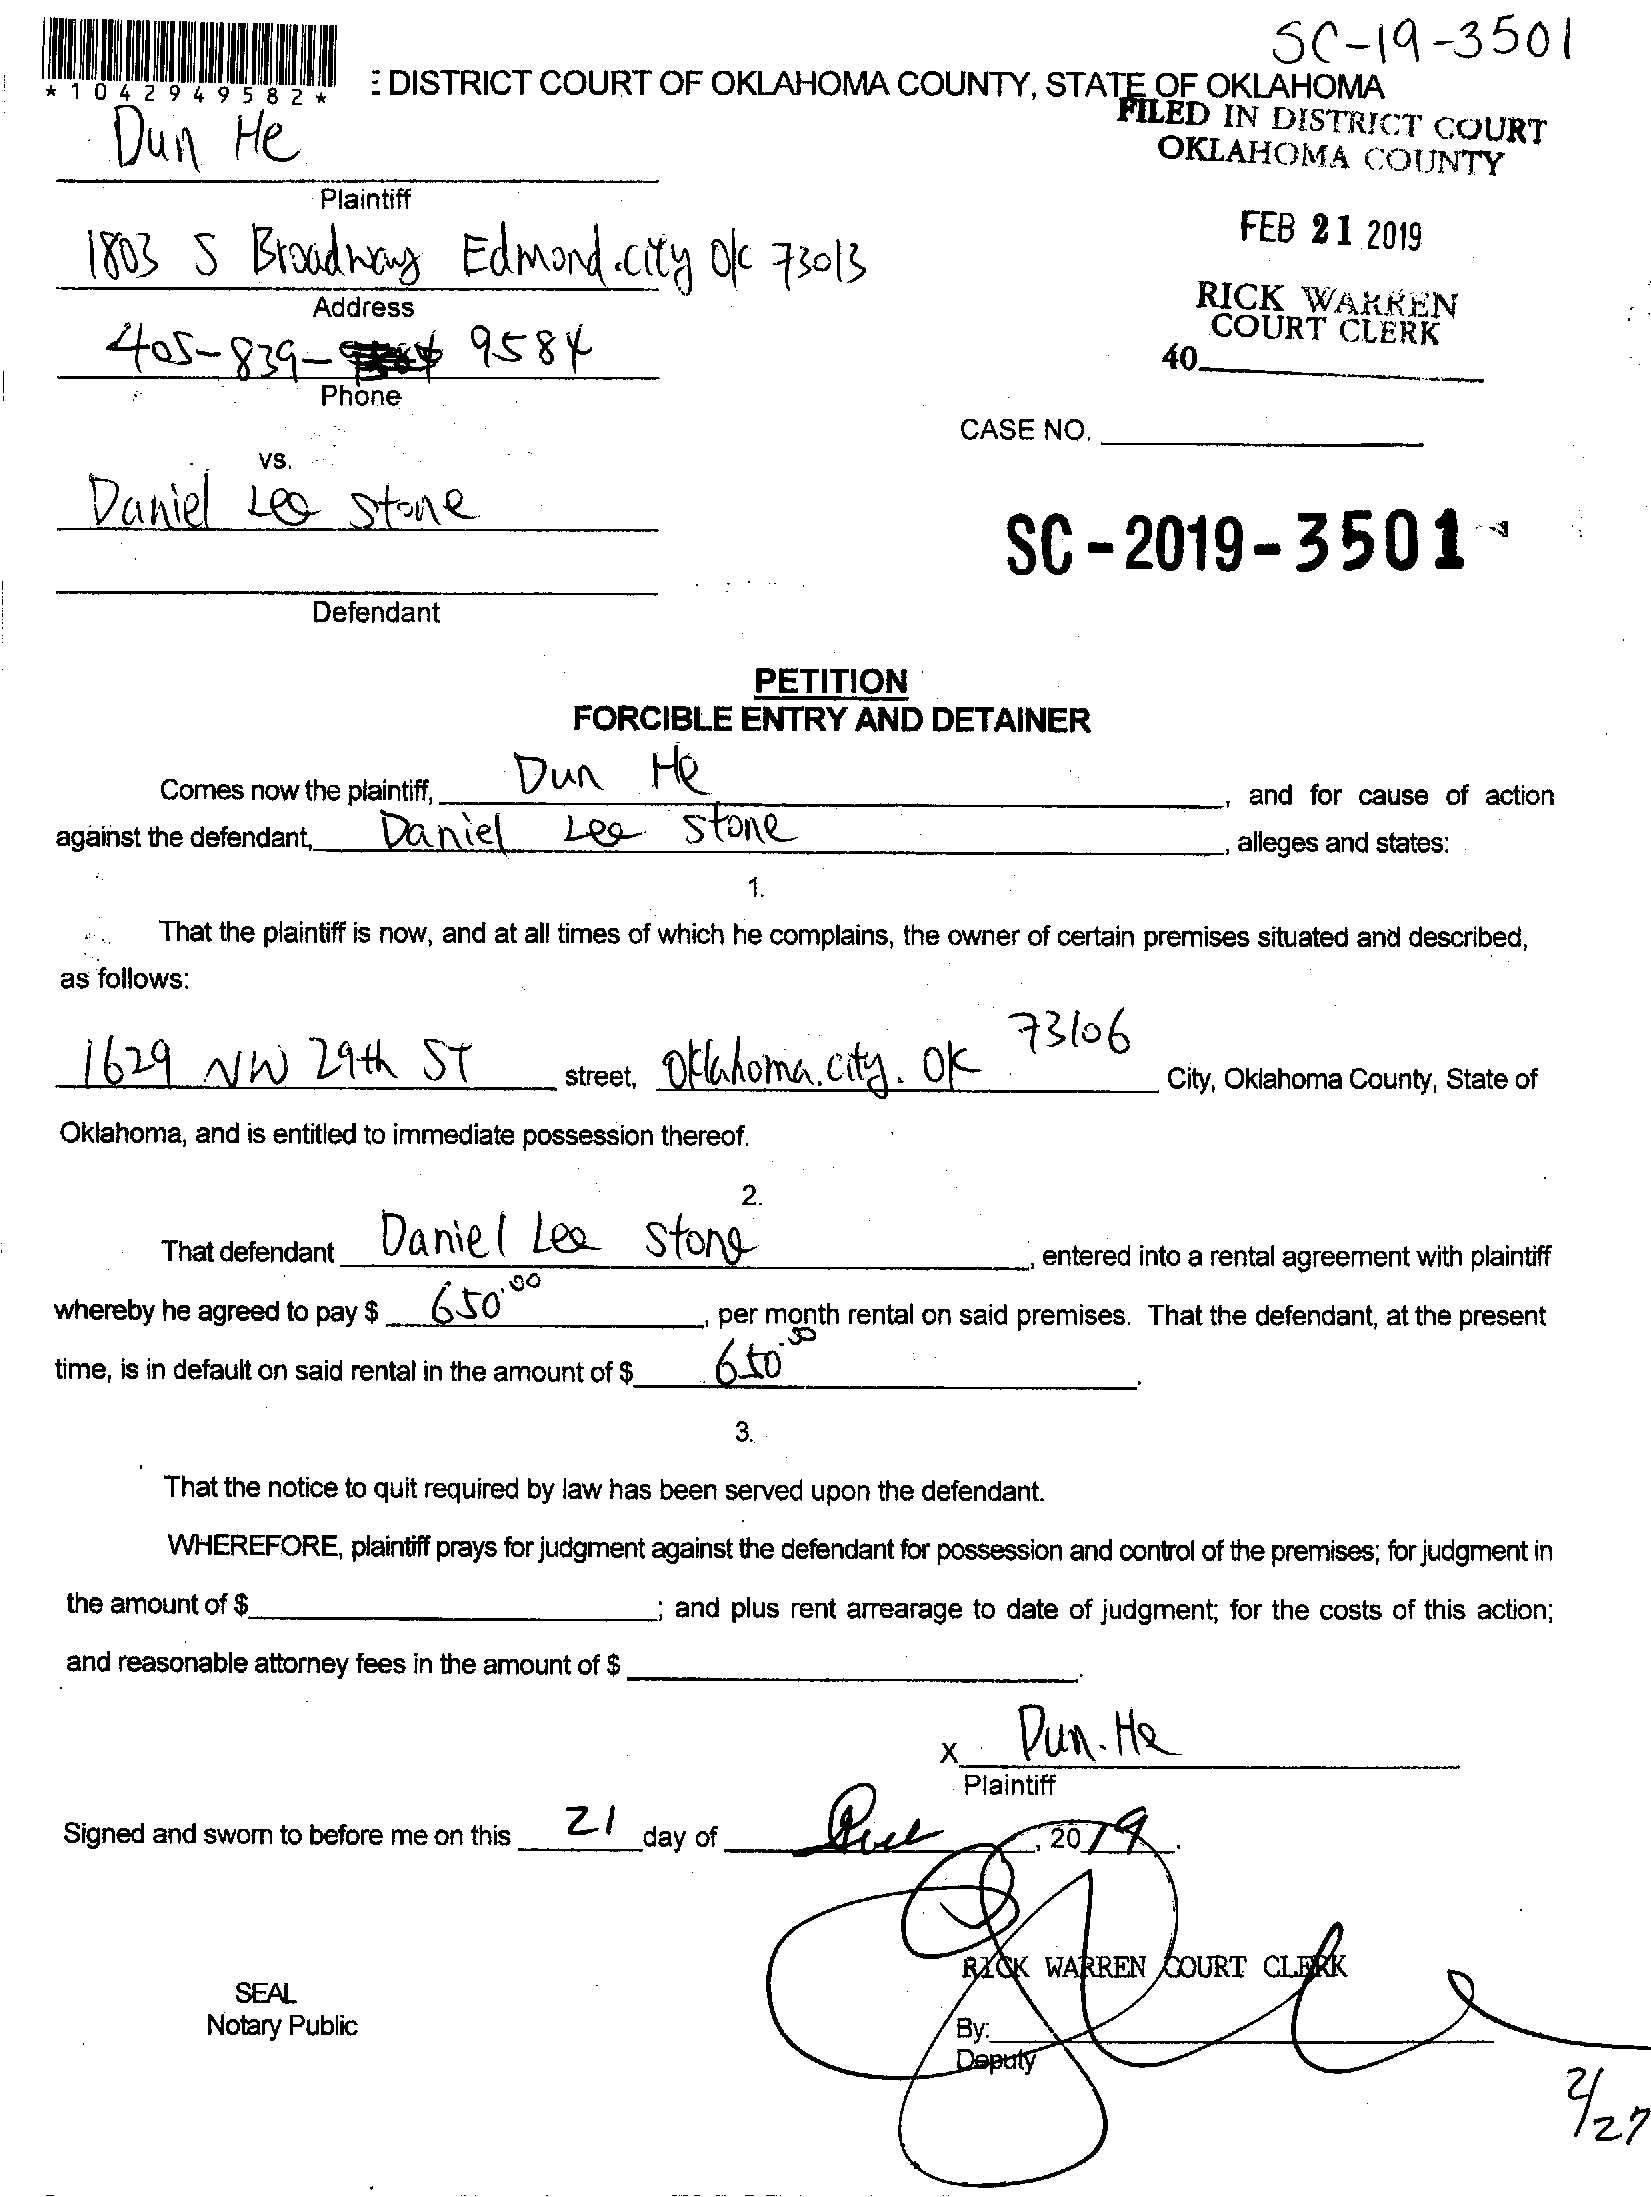 SC-19-3501
*1042949582*
E DISTRICT COURT OF OKLAHOMA COUNTY, STATE OF OKLAHOMA
FILED IN DISTRICT COURT
OKLAHOMA COUNTY
Dun He
Plaintiff
FEB 21 2019
1803 S Broadway Edmond.city OK 73013
Address
RICK WARREN
COURT CLERK
405-839- 9584
40
Phone
CASE NO.
vs.
Daniel Lee Stone
SC-2019-3501
Defendant
PETITION
FORCIBLE ENTRY AND DETAINER
Comes now the plaintiff, Dun He, and for cause of action
against the defendant, Daniel Lee Stone, alleges and states:
1.
That the plaintiff is now, and at all times of which he complains, the owner of certain premises situated and described,
as follows:
1629 NW 29th ST street, Oklahoma.city. OK 73106 City, Oklahoma County, State of
Oklahoma, and is entitled to immediate possession thereof.
2.
That defendant Daniel Lee Stone, entered into a rental agreement with plaintiff
whereby he agreed to pay $ 650.00, per month rental on said premises. That the defendant, at the present
time, is in default on said rental in the amount of $ 650.00.
3.
That the notice to quit required by law has been served upon the defendant.
WHEREFORE, plaintiff prays for judgment against the defendant for possession and control of the premises; for judgment in
the amount of $ ; and plus rent arrearage to date of judgment; for the costs of this action;
and reasonable attorney fees in the amount of $ .
X Dun.He
Plaintiff
Signed and sworn to before me on this 21 day of , 2019.
RICK WARREN COURT CLERK
SEAL
Notary Public
By:
Deputy
2/27